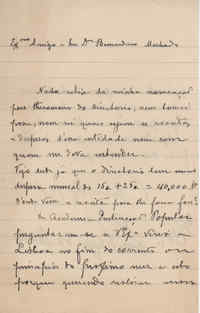 Ex.mo Amigo e Snr Dr Bernardino Machado
Nada sabia da minha nomeação
para thesoureiro do Directorio, nem tomei
posse, nem sei quaes sejam as receitas
e despezas d'essa entidade nem com
quem me devo entender.
Vejo tudo já que o Directorio tem uma
despeza mensal de 15 + 25 = 40,000
D'onde vem a receita para lhe fazer face?
Da Academia Popular
perguntaram-me se V. Ex.a viria a
Lisboa no fim do corrente ou
principios do proximo mez e sabe
porque querendo